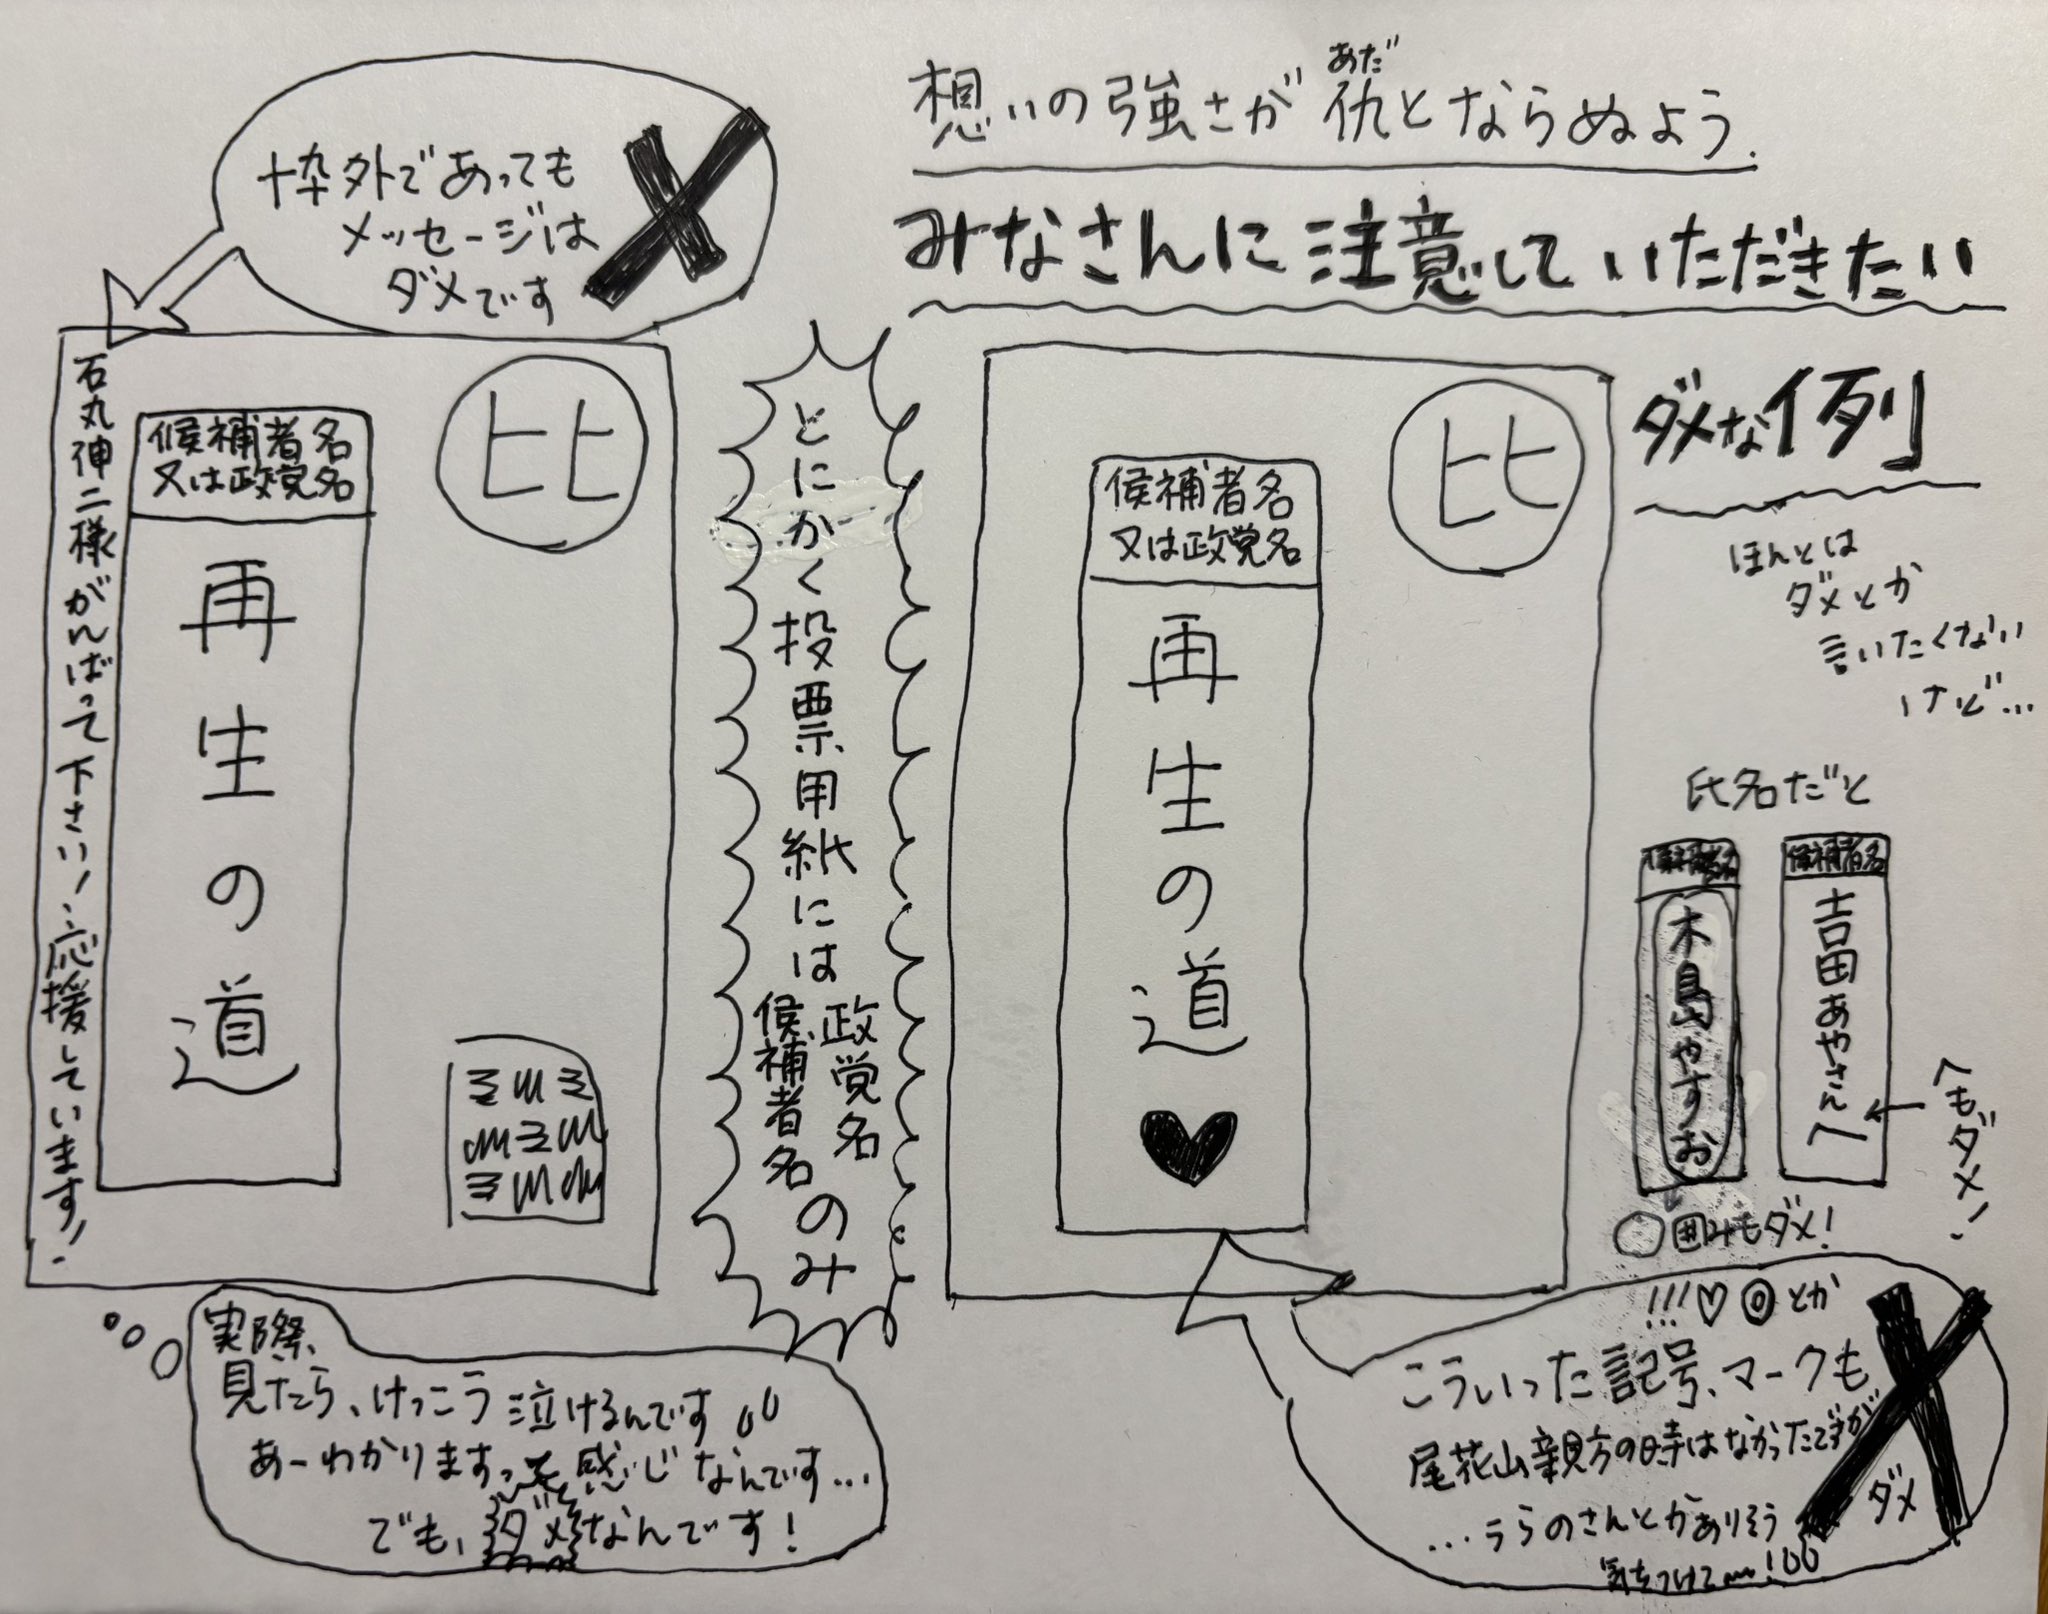 想いの強さが仇とならぬよう、
あだ
みなさんに注意していただきたい
ダメな例
ほんとは
ダメとか
言いたくない
けど…
枠外であっても
メッセージは
ダメです
石丸伸二様がんばって下さい!応援しています!
候補者名
又は政党名
再生の道
比
とにかく投票用紙には
政党名
候補者名
のみ
候補者名
又は政党名
再生の道♥
比
氏名だと
候補者名
木島やすお
○囲みもダメ!
候補者名
吉田あやさんへ
へもダメ!
実際、
見たら、けっこう泣けるんです
あーわかりますって感じなんです…
でも、ダメなんです!
!!!♡◎とか
こういった記号、マークも
ダメ
尾花山親方の時はなかったですが
…うらのさんとかありそう
気をつけて…!